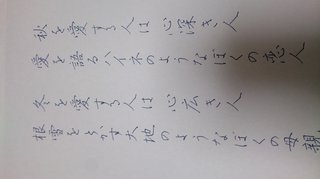 秋を愛する人は 心深き人
愛を語るハイネのようなぼくの恋人
冬を愛する人は 心広き人
根雪をとかす大地のようなぼくの母親